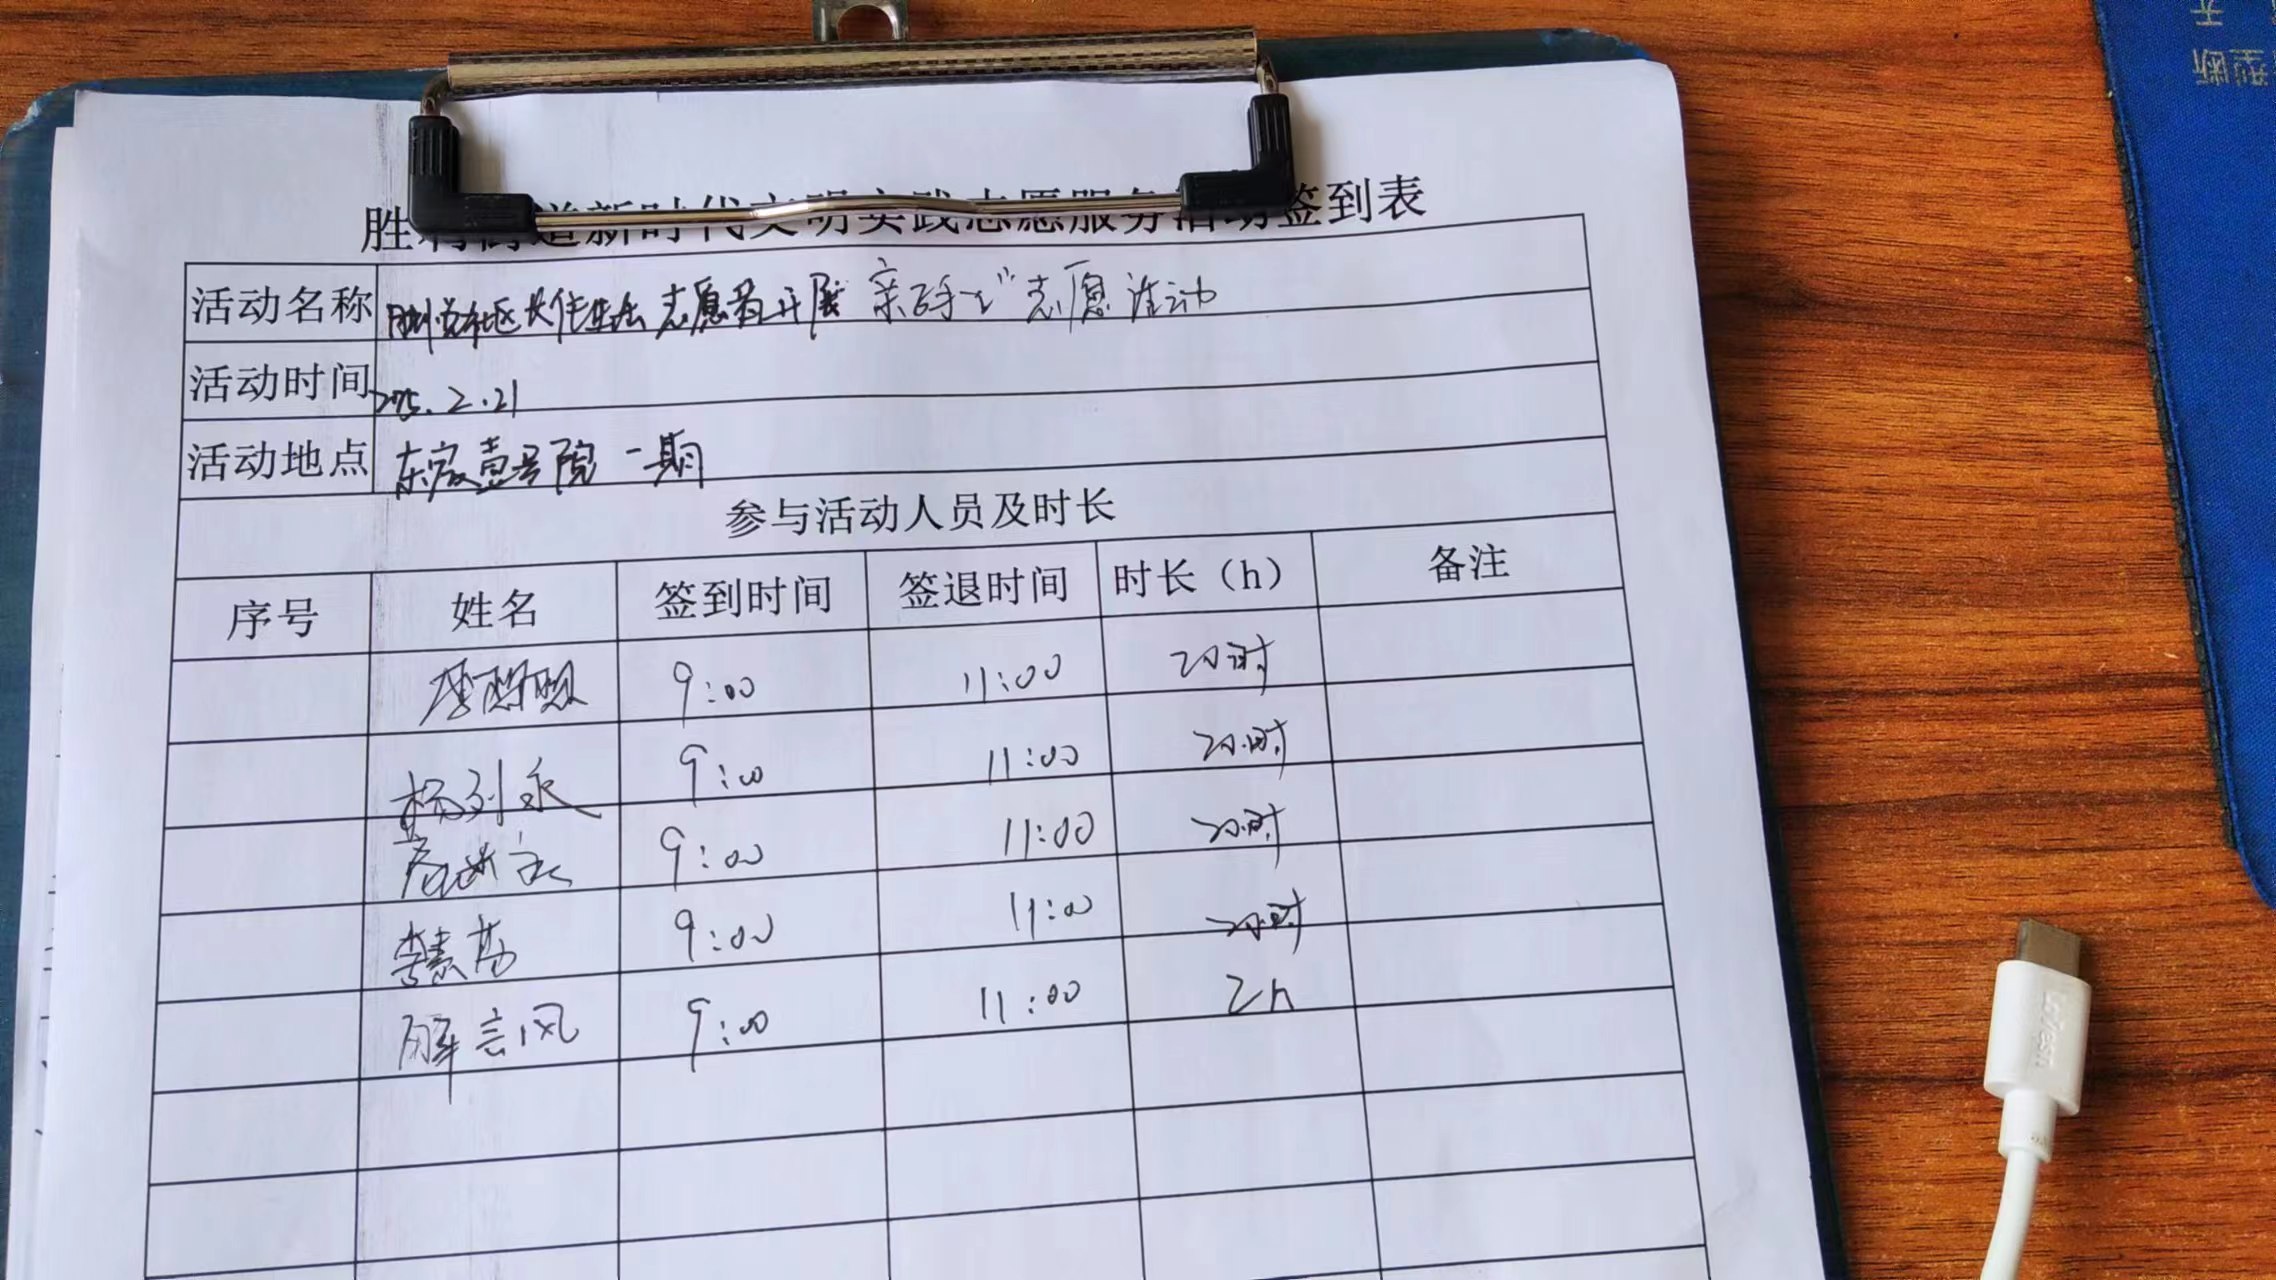 胜利街道新时代文明实践志愿服务活动签到表
活动名称 社区 志愿者开展 志愿活动
活动时间 2025.2.21
活动地点 东宸壹号院一期
参与活动人员及时长
序号 姓名 签到时间 签退时间 时长（h） 备注
9:00 11:00 2小时
杨列永 9:00 11:00 2小时
9:00 11:00 2小时
李慧芳 9:00 11:00 2小时
解言风 9:00 11:00 2h